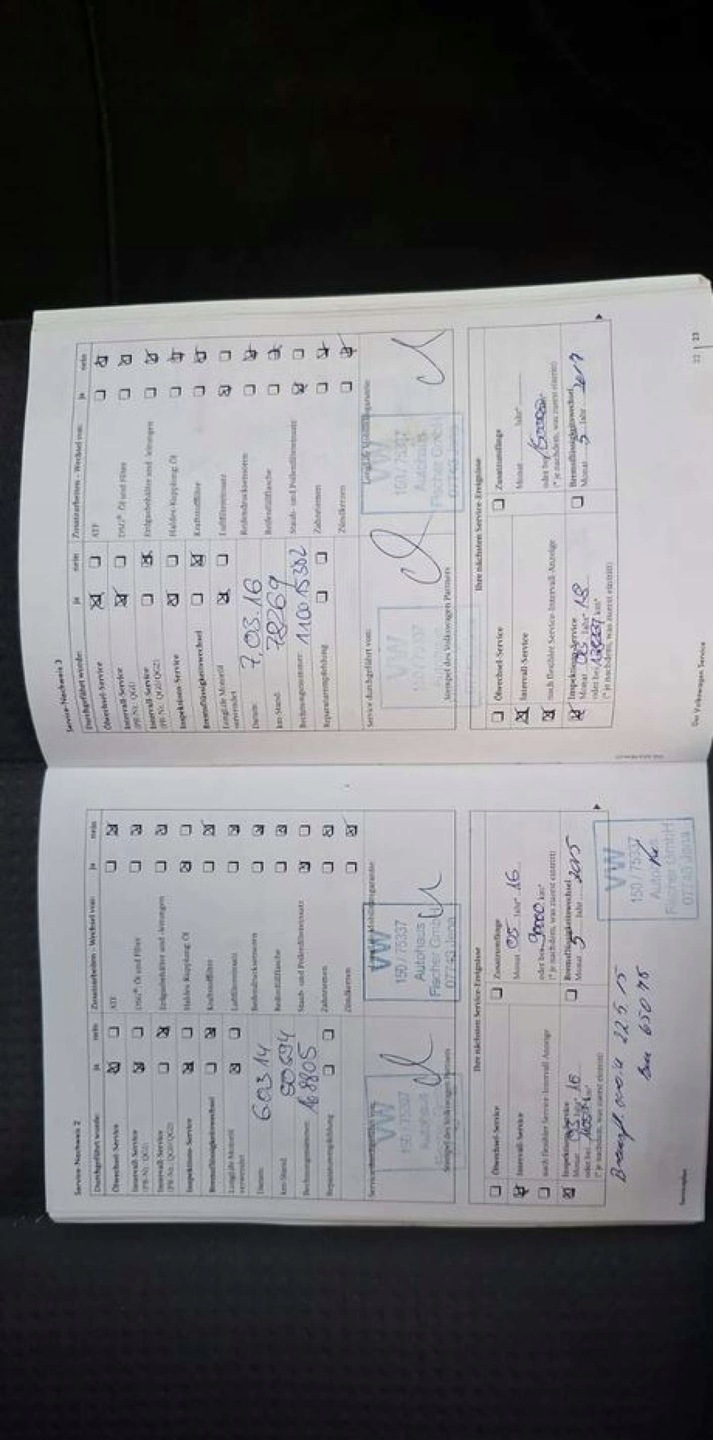 Service-Nachweis 2
Durchgeführt wurde: ja nein
Ölwechsel-Service
Intervall-Service
(PR-Nr.: QG1)
Intervall-Service
(PR-Nr.: QG0/QG2)
Inspektions-Service
Bremsflüssigkeitswechsel
LongLife Motoröl
verwendet
Datum: 6.03.14
km-Stand: 50694
Rechnungsnummer: 168805
Reparaturempfehlung
Zusatzarbeiten - Wechsel von: ja nein
ATF
DSG® Öl und Filter
Erdgasbehälter und -leitungen
Haldex-Kupplung: Öl
Kraftstofffilter
Luftfiltereinsatz
Reifendrucksensoren
Reifenfüllflasche
Staub- und Pollenfiltereinsatz
Zahnriemen
Zündkerzen
VW
150 / 75337
Autohaus
Stempel des Volkswagen Partners
VW
150 / 75337
Autohaus
Fischer GmbH
07743 Jena
Ihre nächsten Service-Ereignisse
Ölwechsel-Service
Intervall-Service
nach flexibler Service-Intervall-Anzeige
Inspektions-Service
Monat 03 Jahr* 16
oder bei km*
(* je nachdem, was zuerst eintritt)
Zusatzumfänge
Monat 05 Jahr* 16
oder bei 90000 km*
(* je nachdem, was zuerst eintritt)
Bremsflüssigkeitswechsel
Monat 5 Jahr 2015
22.5.15
65075
VW
150 / 75337
Fischer GmbH
07743 Jena
Serviceplan
Service-Nachweis 3
Durchgeführt wurde: ja nein
Ölwechsel-Service
Intervall-Service
(PR-Nr.: QG1)
Intervall-Service
(PR-Nr.: QG0/QG2)
Inspektions-Service
Bremsflüssigkeitswechsel
LongLife Motoröl
verwendet
Datum: 7.03.16
km-Stand: 78269
Rechnungsnummer: 110015302
Reparaturempfehlung
Zusatzarbeiten - Wechsel von: ja nein
ATF
DSG® Öl und Filter
Erdgasbehälter und -leitungen
Haldex-Kupplung: Öl
Kraftstofffilter
Luftfiltereinsatz
Reifendrucksensoren
Reifenfüllflasche
Staub- und Pollenfiltereinsatz
Zahnriemen
Zündkerzen
Service durchgeführt von:
VW
Stempel des Volkswagen Partners
VW
150 / 75337
Autohaus
Fischer GmbH
07743 Jena
Ihre nächsten Service-Ereignisse
Ölwechsel-Service
Intervall-Service
nach flexibler Service-Intervall-Anzeige
Inspektions-Service
Monat 03 Jahr* 18
oder bei km*
(* je nachdem, was zuerst eintritt)
Zusatzumfänge
Monat Jahr*
oder bei
(* je nachdem, was zuerst eintritt)
Bremsflüssigkeitswechsel
Monat 5 Jahr 2017
Der Volkswagen Service
22 | 23